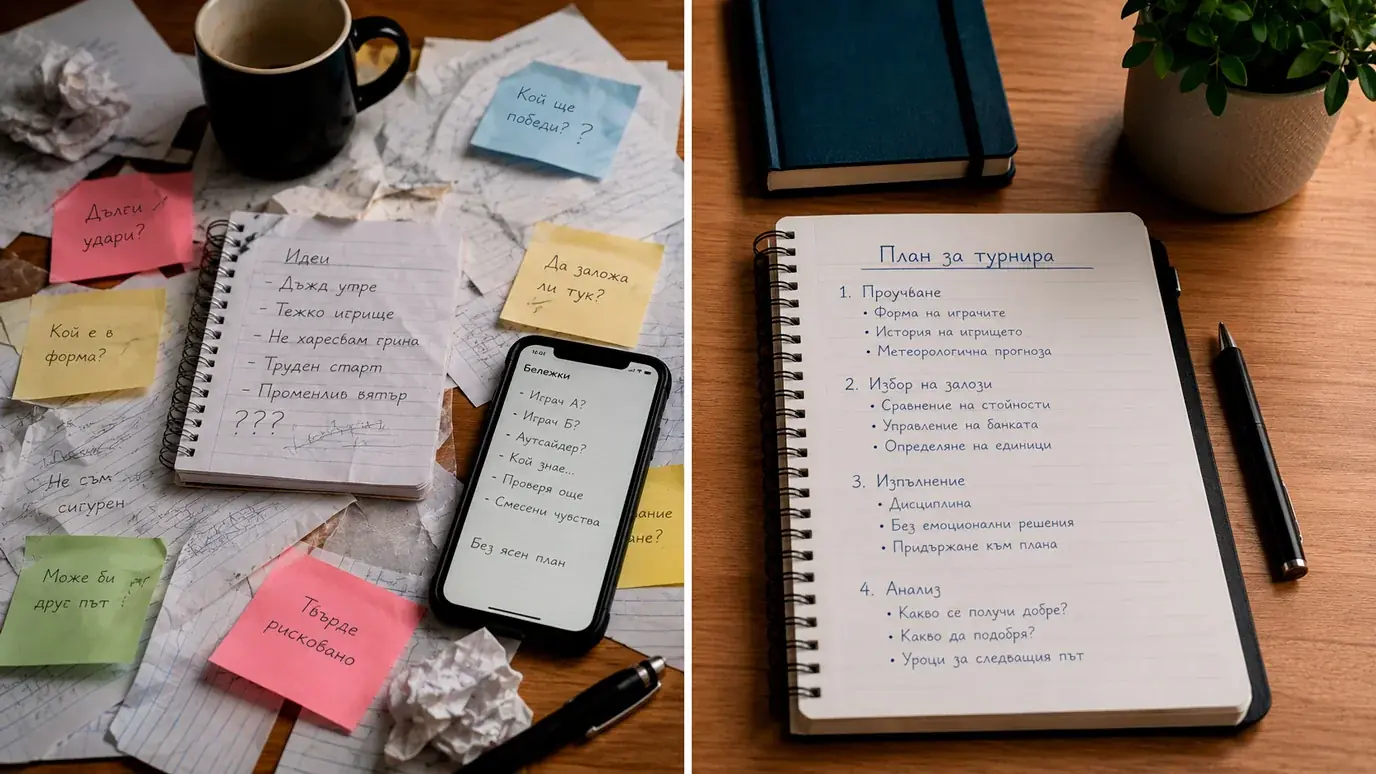 Кой ще
победи? ?
Дълги
удари?
Идеи
- Дъжд утре
- Тежко игрище
- Не харесвам грина
- Труден старт
- Променлив вятър
???
Да заложа
ли тук?
Кой е в
форма?
12:01
Бележки
- Играч А?
- Играч Б?
- Аутсайдер?
- Кой знае...
- Проверя още
- Смесени чувства
Без ясен план
Не съм
сигурен
Може би
друг път
Твърде
рисковано
План за турнира
1. Проучване
• Форма на играчите
• История на игрището
• Метеорологична прогноза
2. Избор на залози
• Сравнение на стойности
• Управление на банката
• Определяне на единици
3. Изпълнение
• Дисциплина
• Без емоционални решения
• Придържане към плана
4. Анализ
• Какво се получи добре?
• Какво да подобря?
• Уроци за следващия път